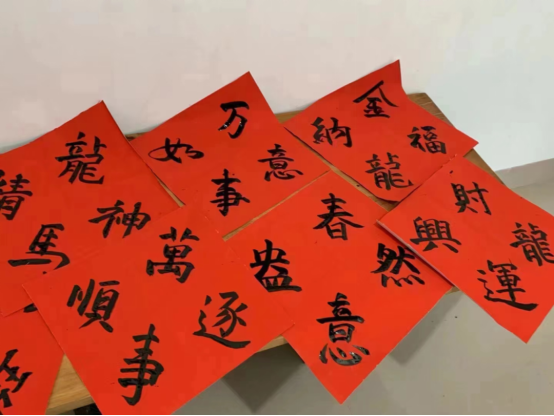 龍馬精神
万事如意
金龍納福
萬事順逐
春意盎然
財運興龍